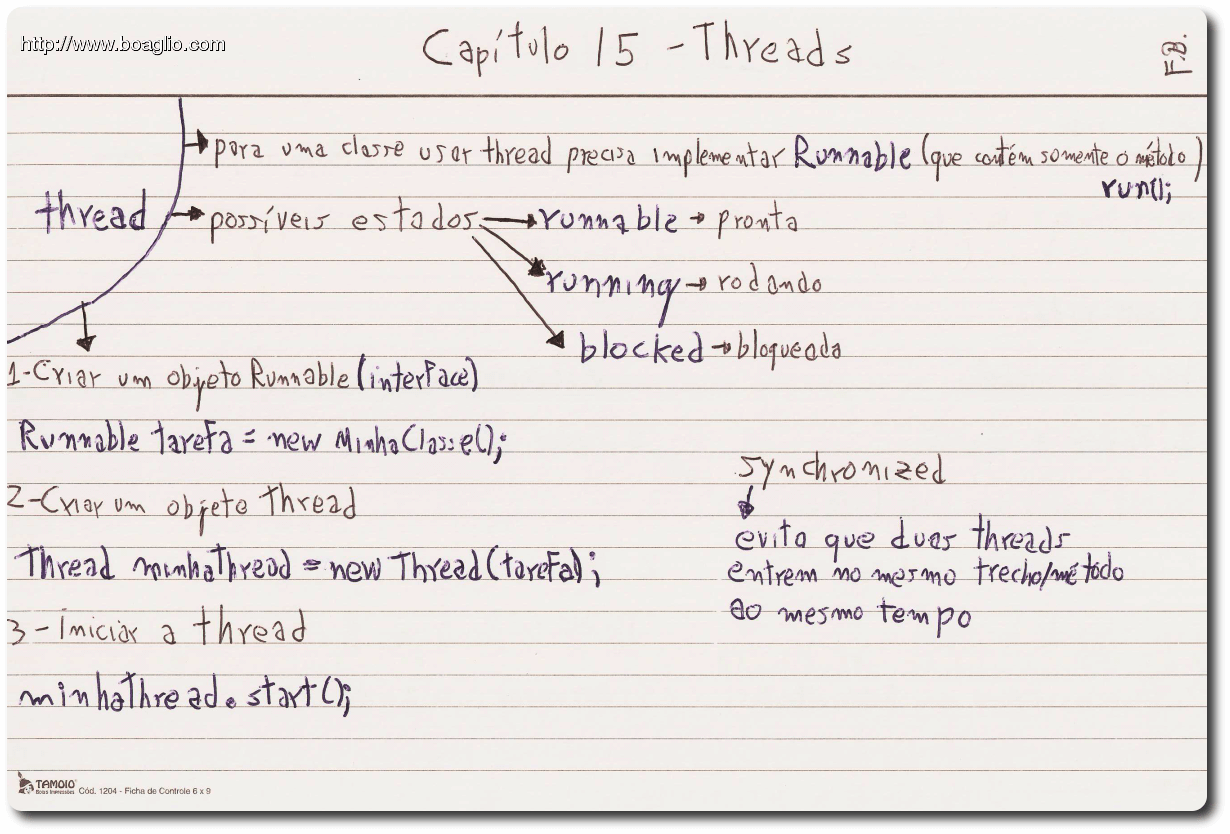 http://www.boaglio.com
Capítulo 15 - Threads
F.B.
para uma classe usar thread precisa implementar Runnable (que contém somente o método)
run();
thread
possíveis estados
runnable → pronta
running → rodando
blocked → bloqueada
1-Criar um objeto Runnable (interface)
Runnable tarefa = new MinhaClasse();
2-Criar um objeto thread
Thread minhaThread = new Thread(tarefa);
3-Iniciar a thread
minhaThread.start();
synchronized
evita que duas threads
entrem no mesmo trecho/método
ao mesmo tempo
TAMOIO
Cód. 1204 - Ficha de Controle 6 x 9